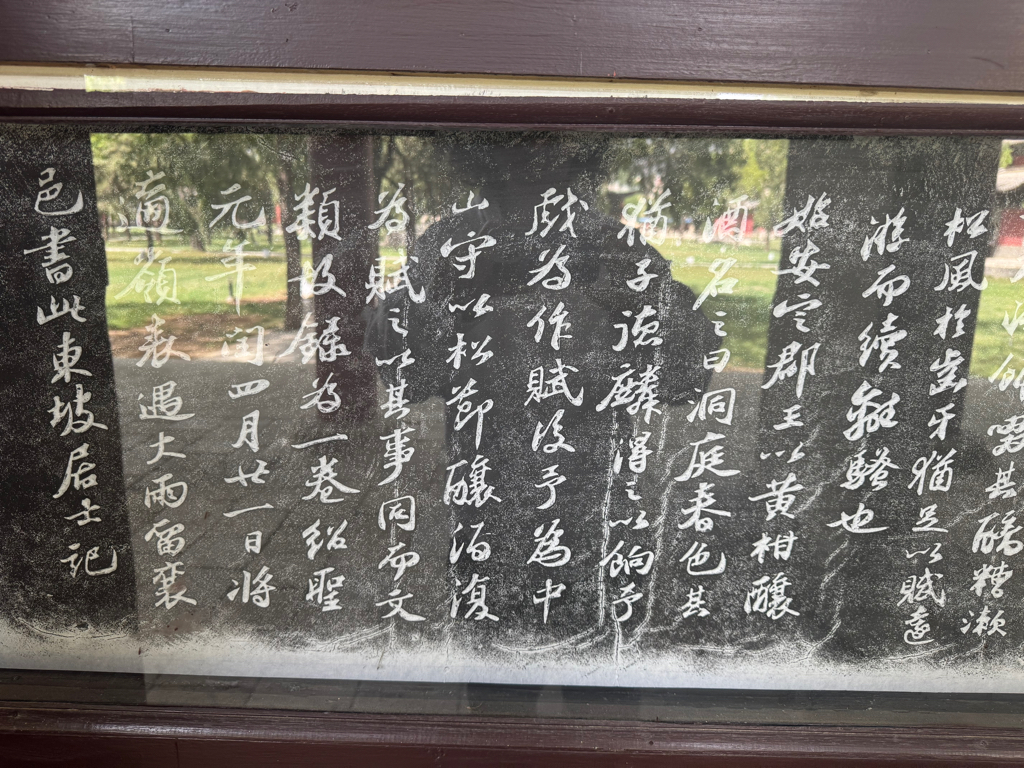 歸餔歠其醨糟漱
松風於齒牙猶足以賦遠
游而續離騷也
始安定郡王以黃柑釀
酒名之曰洞庭春色其
猶子德麟得之以餉予
戲為作賦後予為中
山守以松節釀酒復
為賦之以其事同而文
類故錄為一卷紹聖
元年閏四月廿一日將
適嶺表遇大雨留襄
邑書此東坡居士記